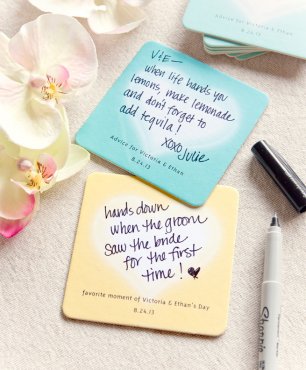 Advice for Victoria & Ethan
8.24.13
V+E—
when life hands you
lemons, make lemonade
and don't forget to
add tequila!
XOXO Julie
Advice for Victoria & Ethan
8.24.13
hands down
when the groom
saw the bride
for the first
time! ♥
favorite moment of Victoria & Ethan's Day
8.24.13
Sharpie